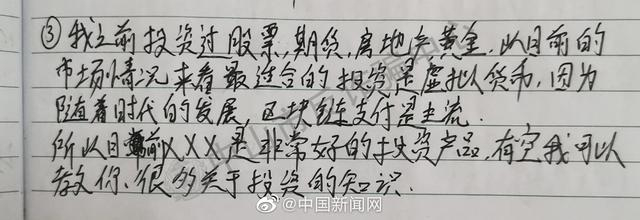 ③我之前投资过股票,期货,房地产黄金,以目前的
市场情况来看最适合的投资是虚拟货币,因为
随着时代的发展,区块链支付是主流.
所以目前XXX是非常好的投资产品,有空我可以
教你很多关于投资的知识.
@中国新闻网